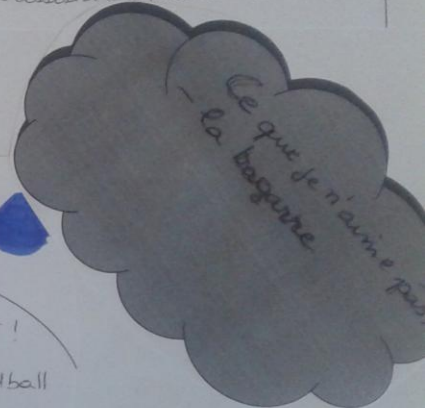 Ce que je n'aime pas
- la bagarre
!